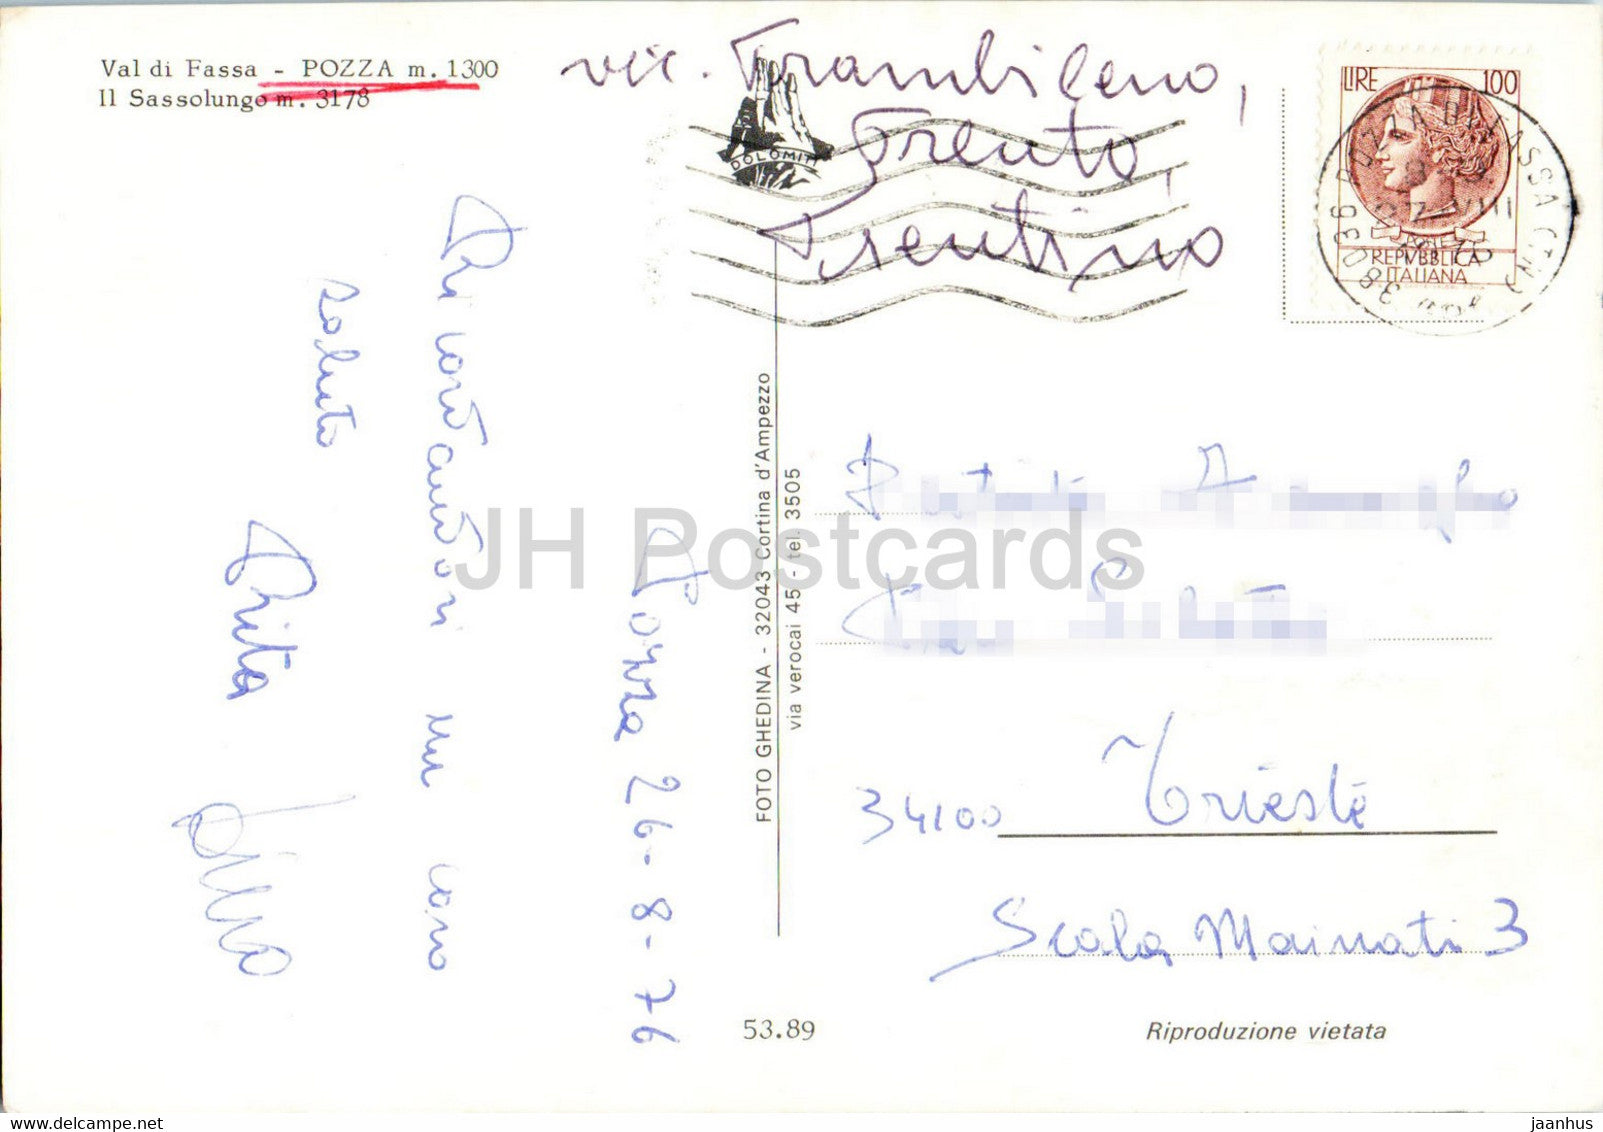 Val di Fassa - POZZA m. 1300
Il Sassolungo m. 3178
vic. Trambileno,
Trento,
Trentino
DOLOMITI
LIRE 100
REPVBBLICA
ITALIANA
38036 POZZA DI FASSA (TN)
Ricordandovi mi caro
saluto
Rita
Pozza 26-8-76
FOTO GHEDINA - 32043 Cortina d'Ampezzo
via verocai 45 - tel. 3505
34100 Trieste
Scala Mainati 3
53.89
Riproduzione vietata
JH Postcards
jaanhus